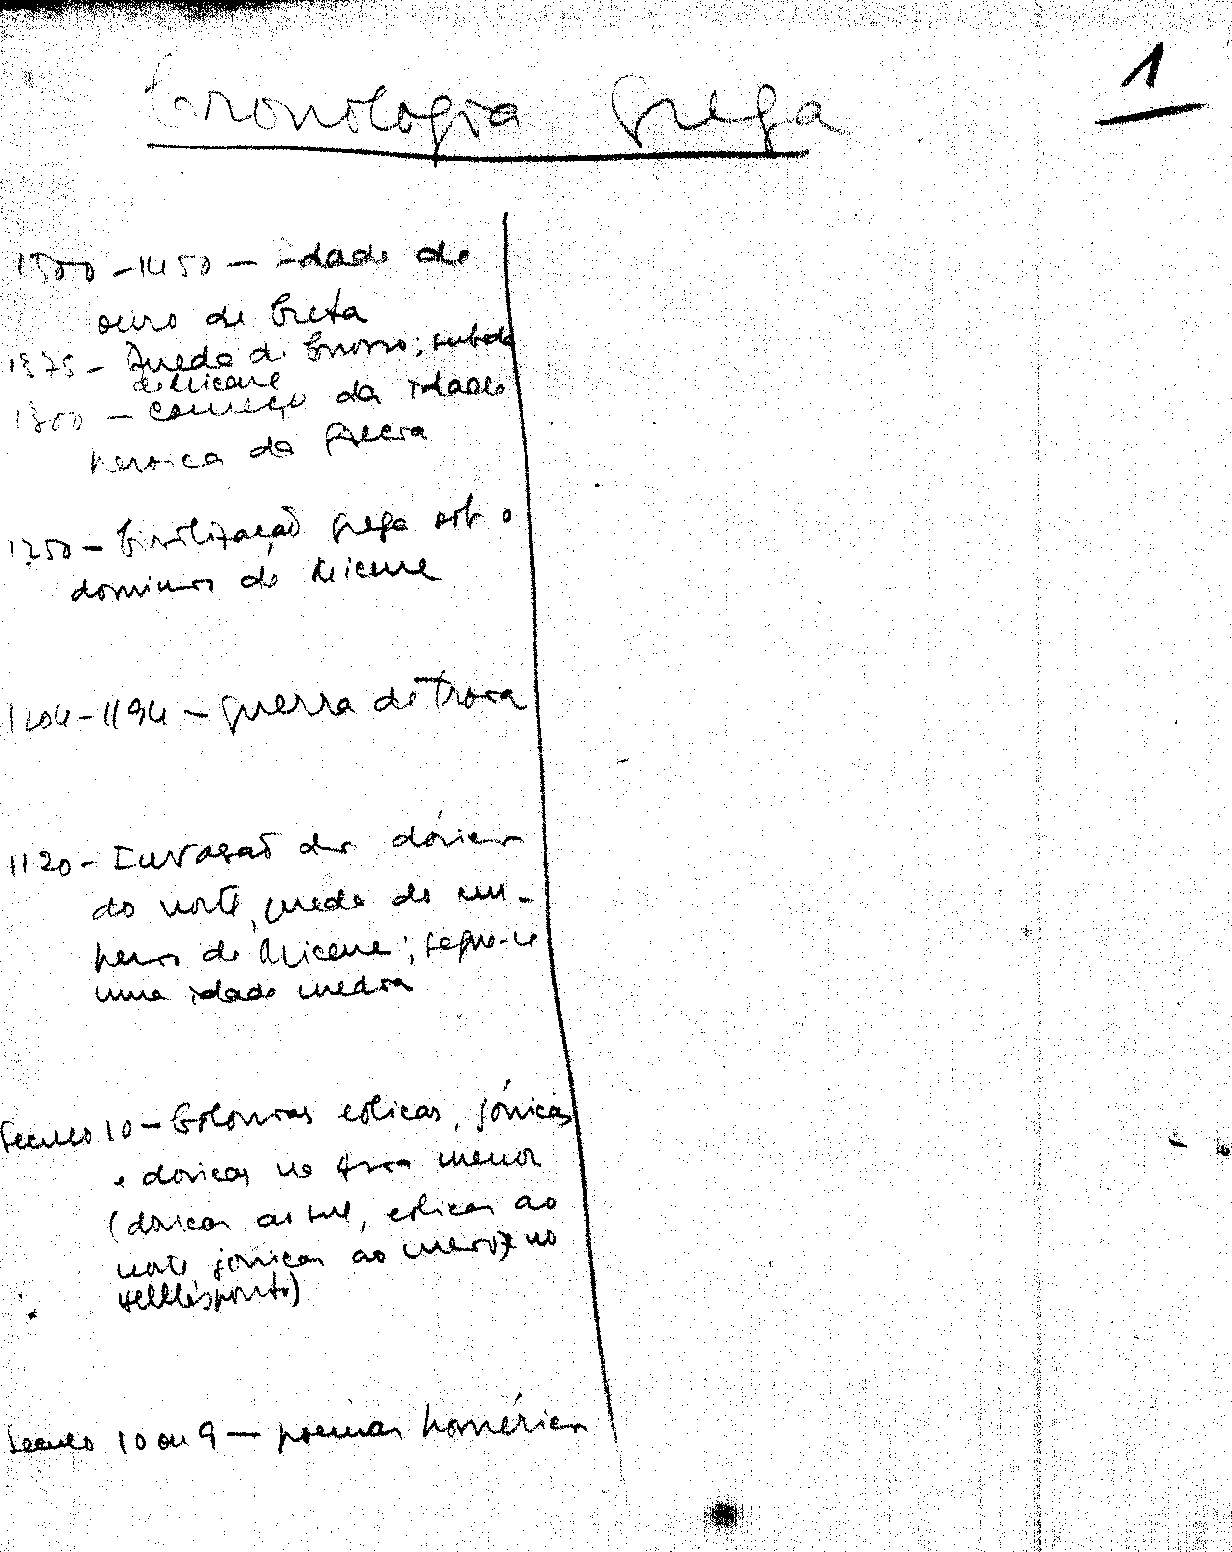 1
Cronologia Grega
1500 - 1450 — idade de
ouro de Creta
1375 - Queda de Cnosso; subida
de Micene
1300 - começo da idade
heroica da Grecia
1250 - Civilização grega sob o
dominio de Micene
1204 - 1194 - guerra de Troia
1120 - Invasão dos dórios
do norte, queda do im-
perio de Micene; segue-se
uma idade media
Seculo 10 - Colonias eolicas, jónicas
e doricas na Asia menor
(doricas ao sul, eolicas ao
norte jonicas ao meio) e no
Hellésponto)
Seculo 10 ou 9 — poemas homéricos